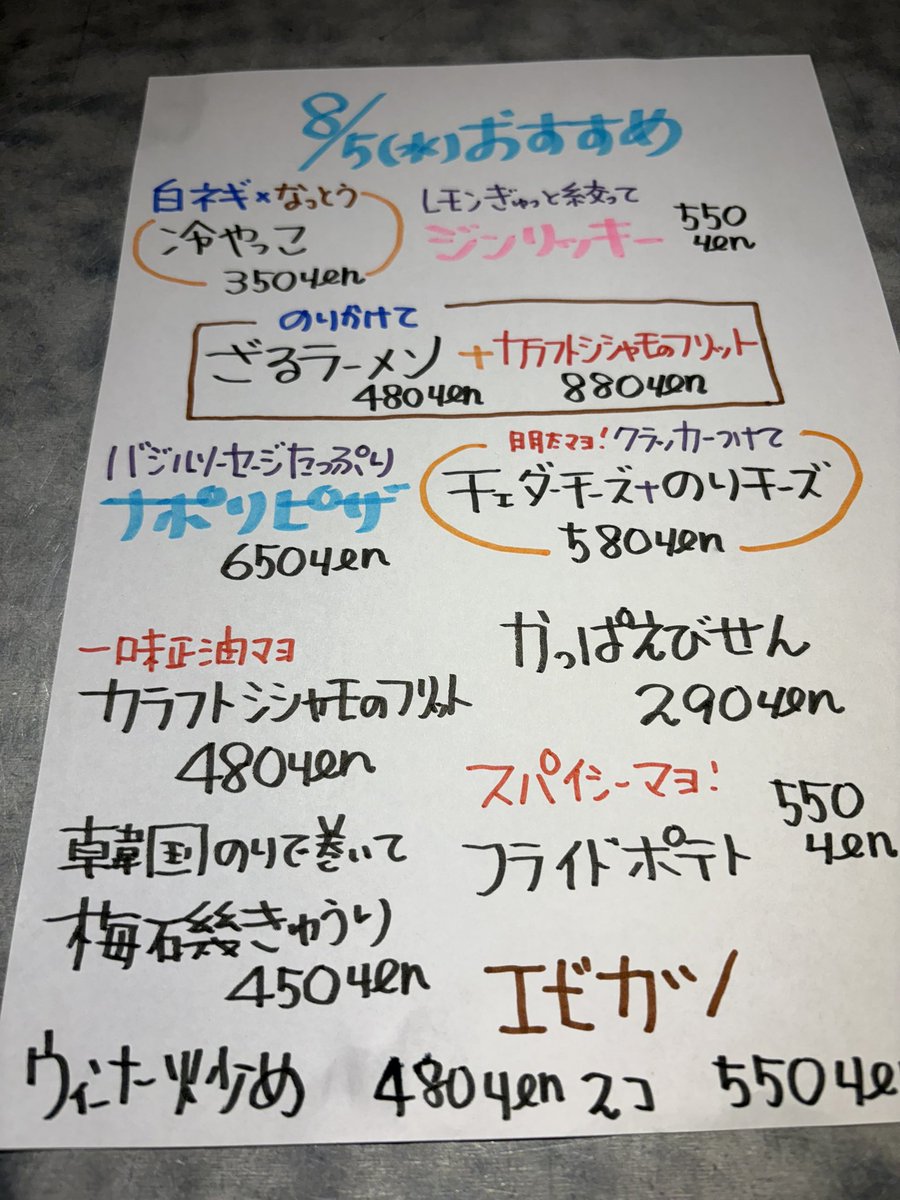 8/5(水)おすすめ
白ネギ×なっとう
冷やっこ
350yen
レモンぎゅっと絞って
ジンリッキー
550
yen
のりかけて
ざるラーメン+カラフトシシャモのフリット
480yen
880yen
バジルソーセージたっぷり
ナポリピザ
650yen
明太マヨ!クラッカーつけて
チェダーチーズ+のりチーズ
580yen
一味正油マヨ
カラフトシシャモのフリット
480yen
かっぱえびせん
290yen
スパイシーマヨ!
フライドポテト
550
yen
韓国のりで巻いて
梅磯きゅうり
450yen
エビカツ
2コ 550ye
ウィンナー炒め 480yen